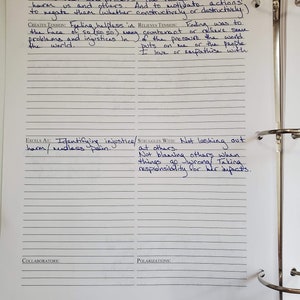 harm us and others. And to motivate actions
to negate them (whether constructively or destructively)
CREATES TENSION: Feeling helpless in
the face of so (so so) many
problems and injustices in
the world.
RELIEVES TENSION: Finding ways to
counteract or relieve some
of the pressure the world
puts on me or the people
I love or empathise with
EXCELS AT: Identifying injustice/
harm/needless pain
STRUGGLES WITH: Not lashing out
at others.
Not blaming others when
things go wrong. Taking
responsibility for her
COLLABORATOR:
POLARIZATIONS: